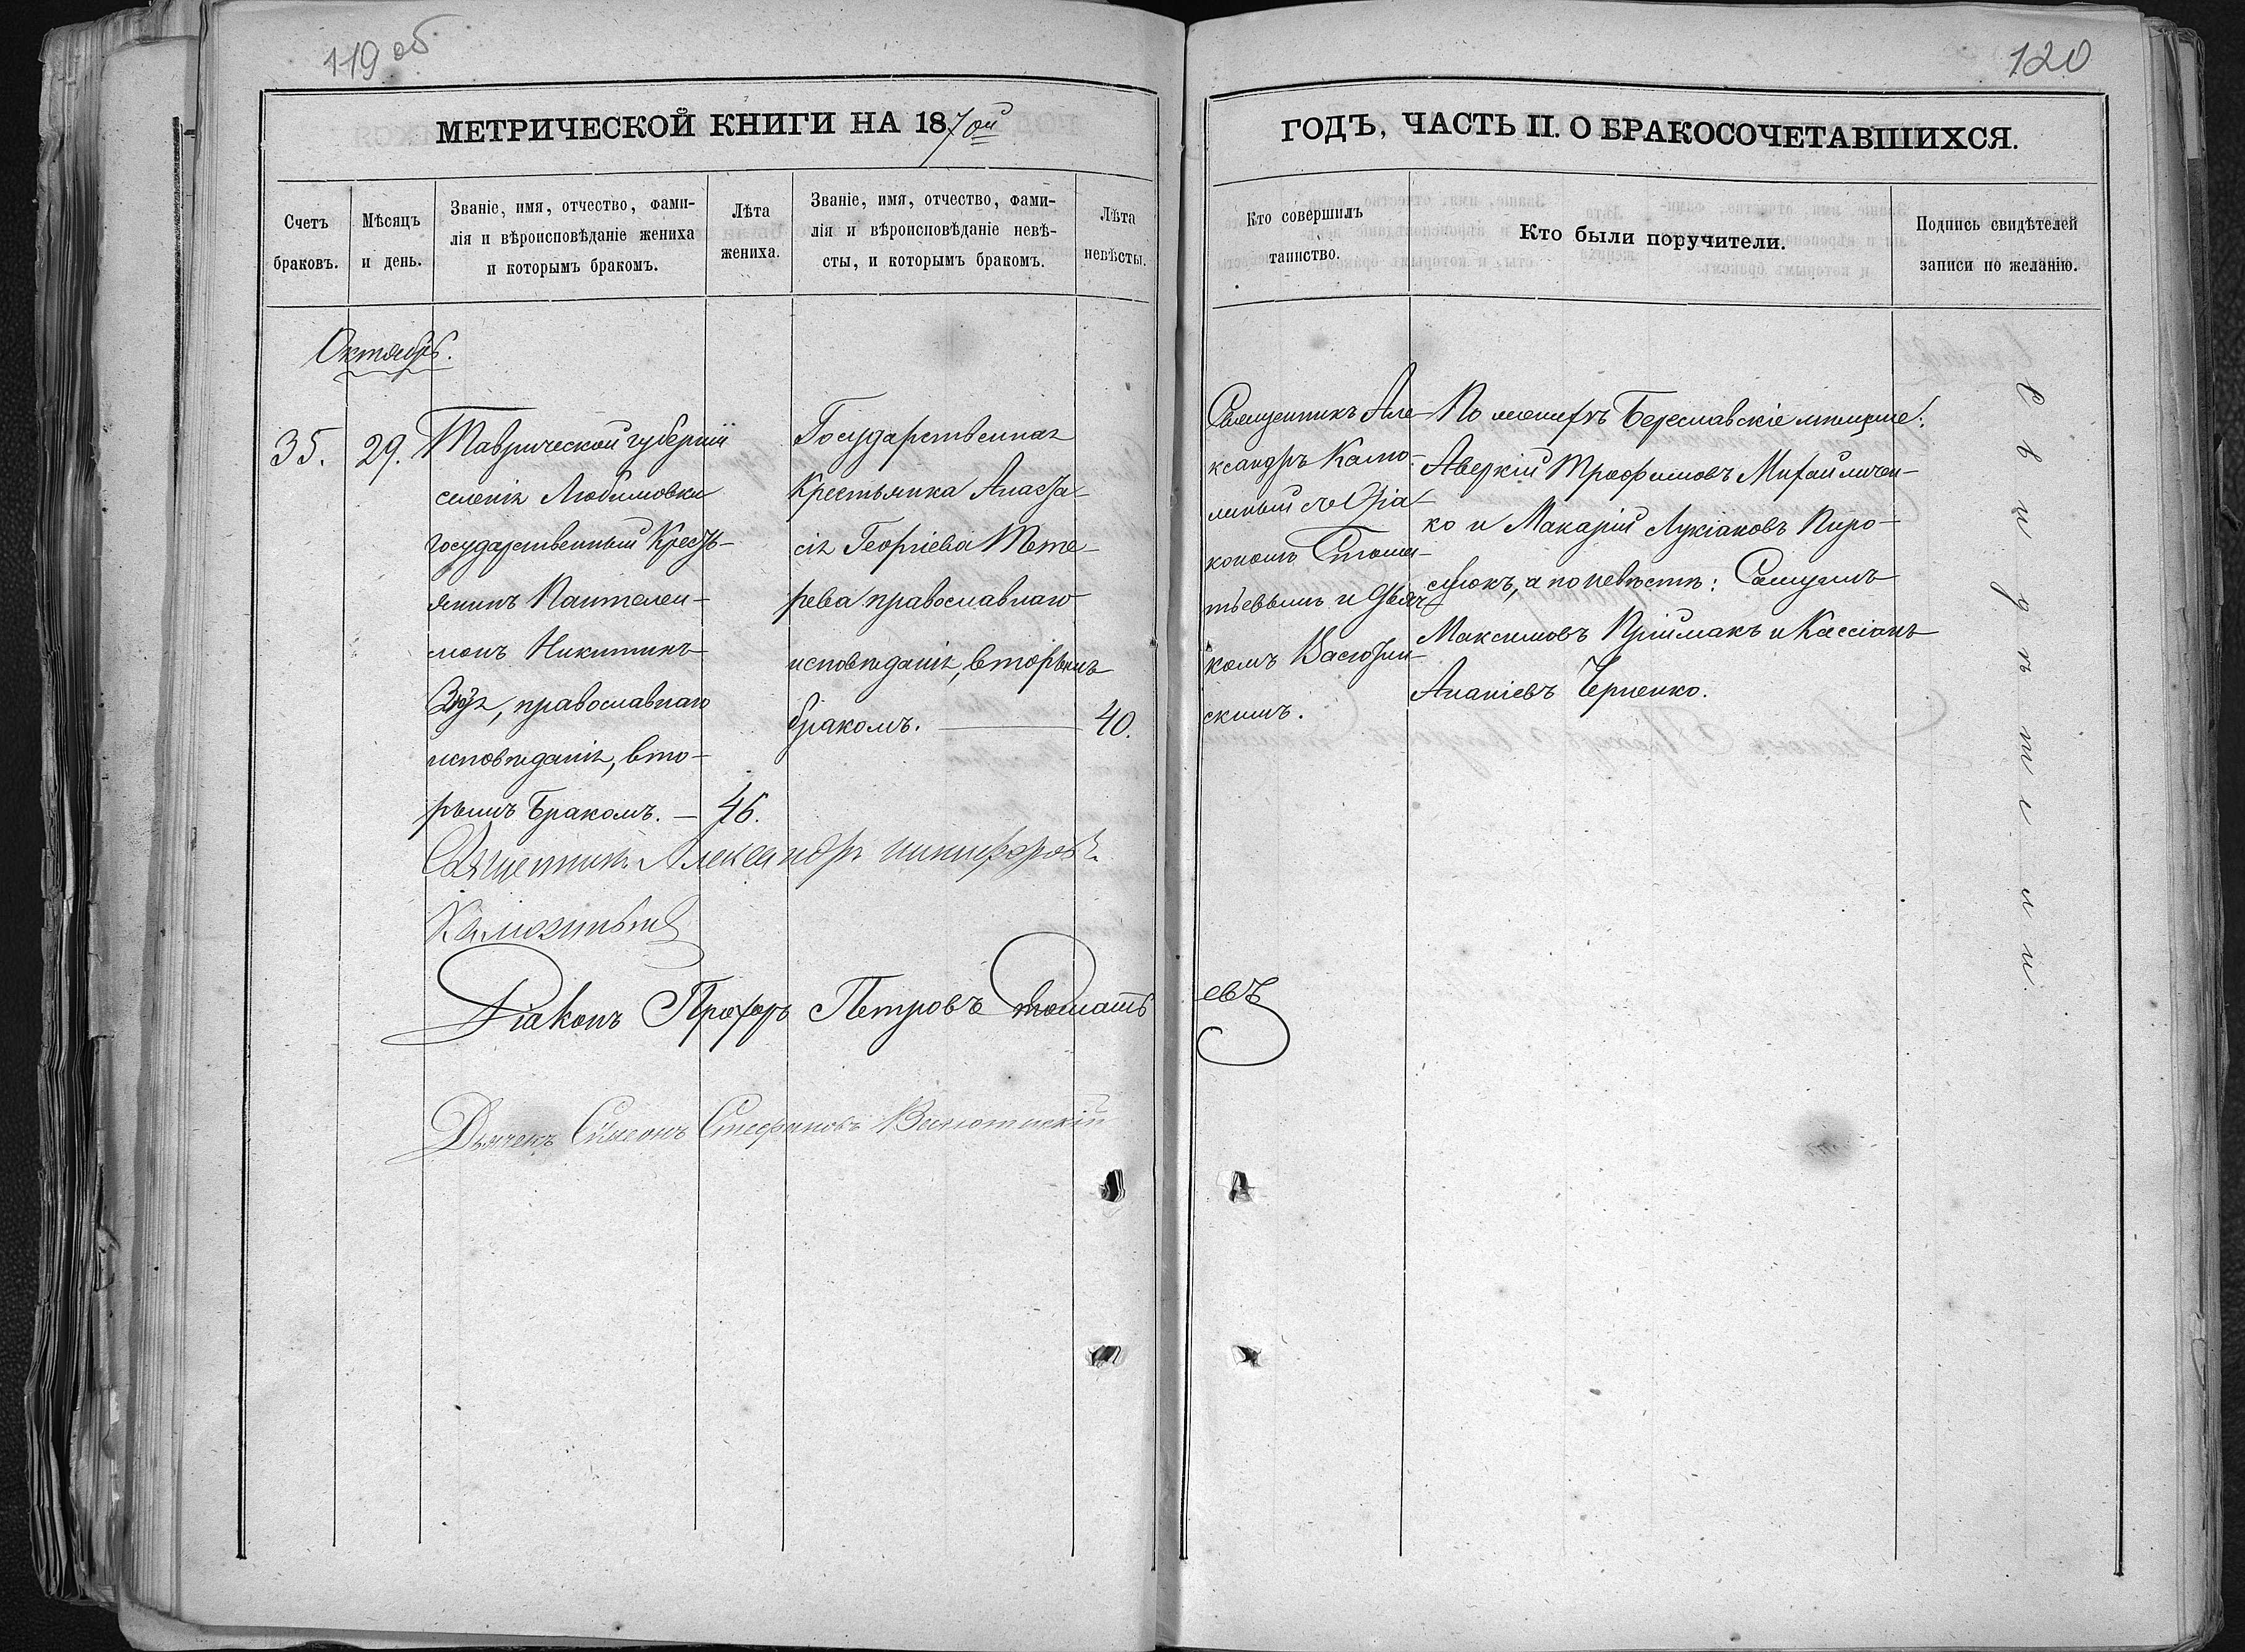 119 об
120
МЕТРИЧЕСКОЙ КНИГИ НА 1870й
ГОДЪ, ЧАСТЬ II. О БРАКОСОЧЕТАВШИХСЯ.
Счетъ
браковъ.
Мѣсяцъ
и день.
Званіе, имя, отчество, фами-
лія и вѣроисповѣданіе жениха
и которымъ бракомъ.
Лѣта
жениха.
Званіе, имя, отчество, фами-
лія и вѣроисповѣданіе невѣ-
сты, и которымъ бракомъ.
Лѣта
невѣсты.
Кто совершилъ
таинство.
Кто были поручители.
Подпись свидѣтелей
записи по желанію.
Октябрь.
35.
29.
Таврической губерніи
селенія Любимовки
государственный Кресть-
янинъ Пантелеи-
монъ Никитинъ
православнаго
исповѣданія, вто-
рымъ бракомъ. — 46.
Государственная
Крестьянка Анаста-
сія Георгіева Тете-
рева православнаго
исповѣданія, вторымъ
бракомъ. — 40.
Священникъ Але-
ксандръ Калю-
жный съ Діа-
кономъ
тьевымъ и Дьяч-
комъ Васютин-
скимъ.
По женихѣ Бериславскіе мѣщане:
Аверкій Трофимовъ Михайличен-
ко и Макарій Лукіановъ Пиро-
жокъ, а по невѣстѣ: Самуилъ
Максимовъ Пріймакъ и Кассіанъ
Ананіевъ Черненко.
Священникъ Александръ Никифоровъ
Калюжный
Діаконъ Прохоръ Петровъ евъ
Дьячекъ Симеонъ Стефановъ Васютинскій